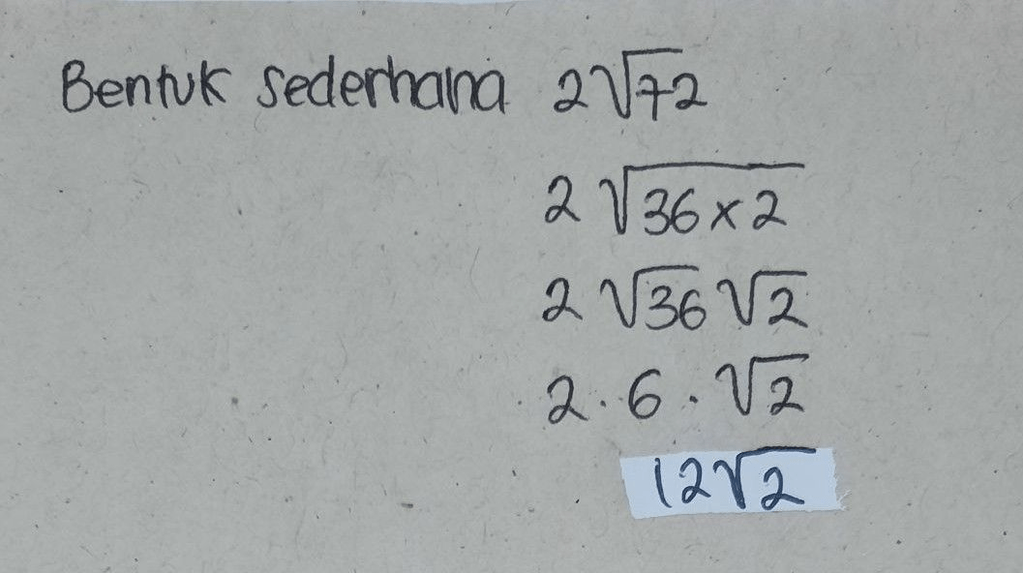 Bentuk sederhana 2√72
2√36×2
2√36√2
2·6·√2
12√2